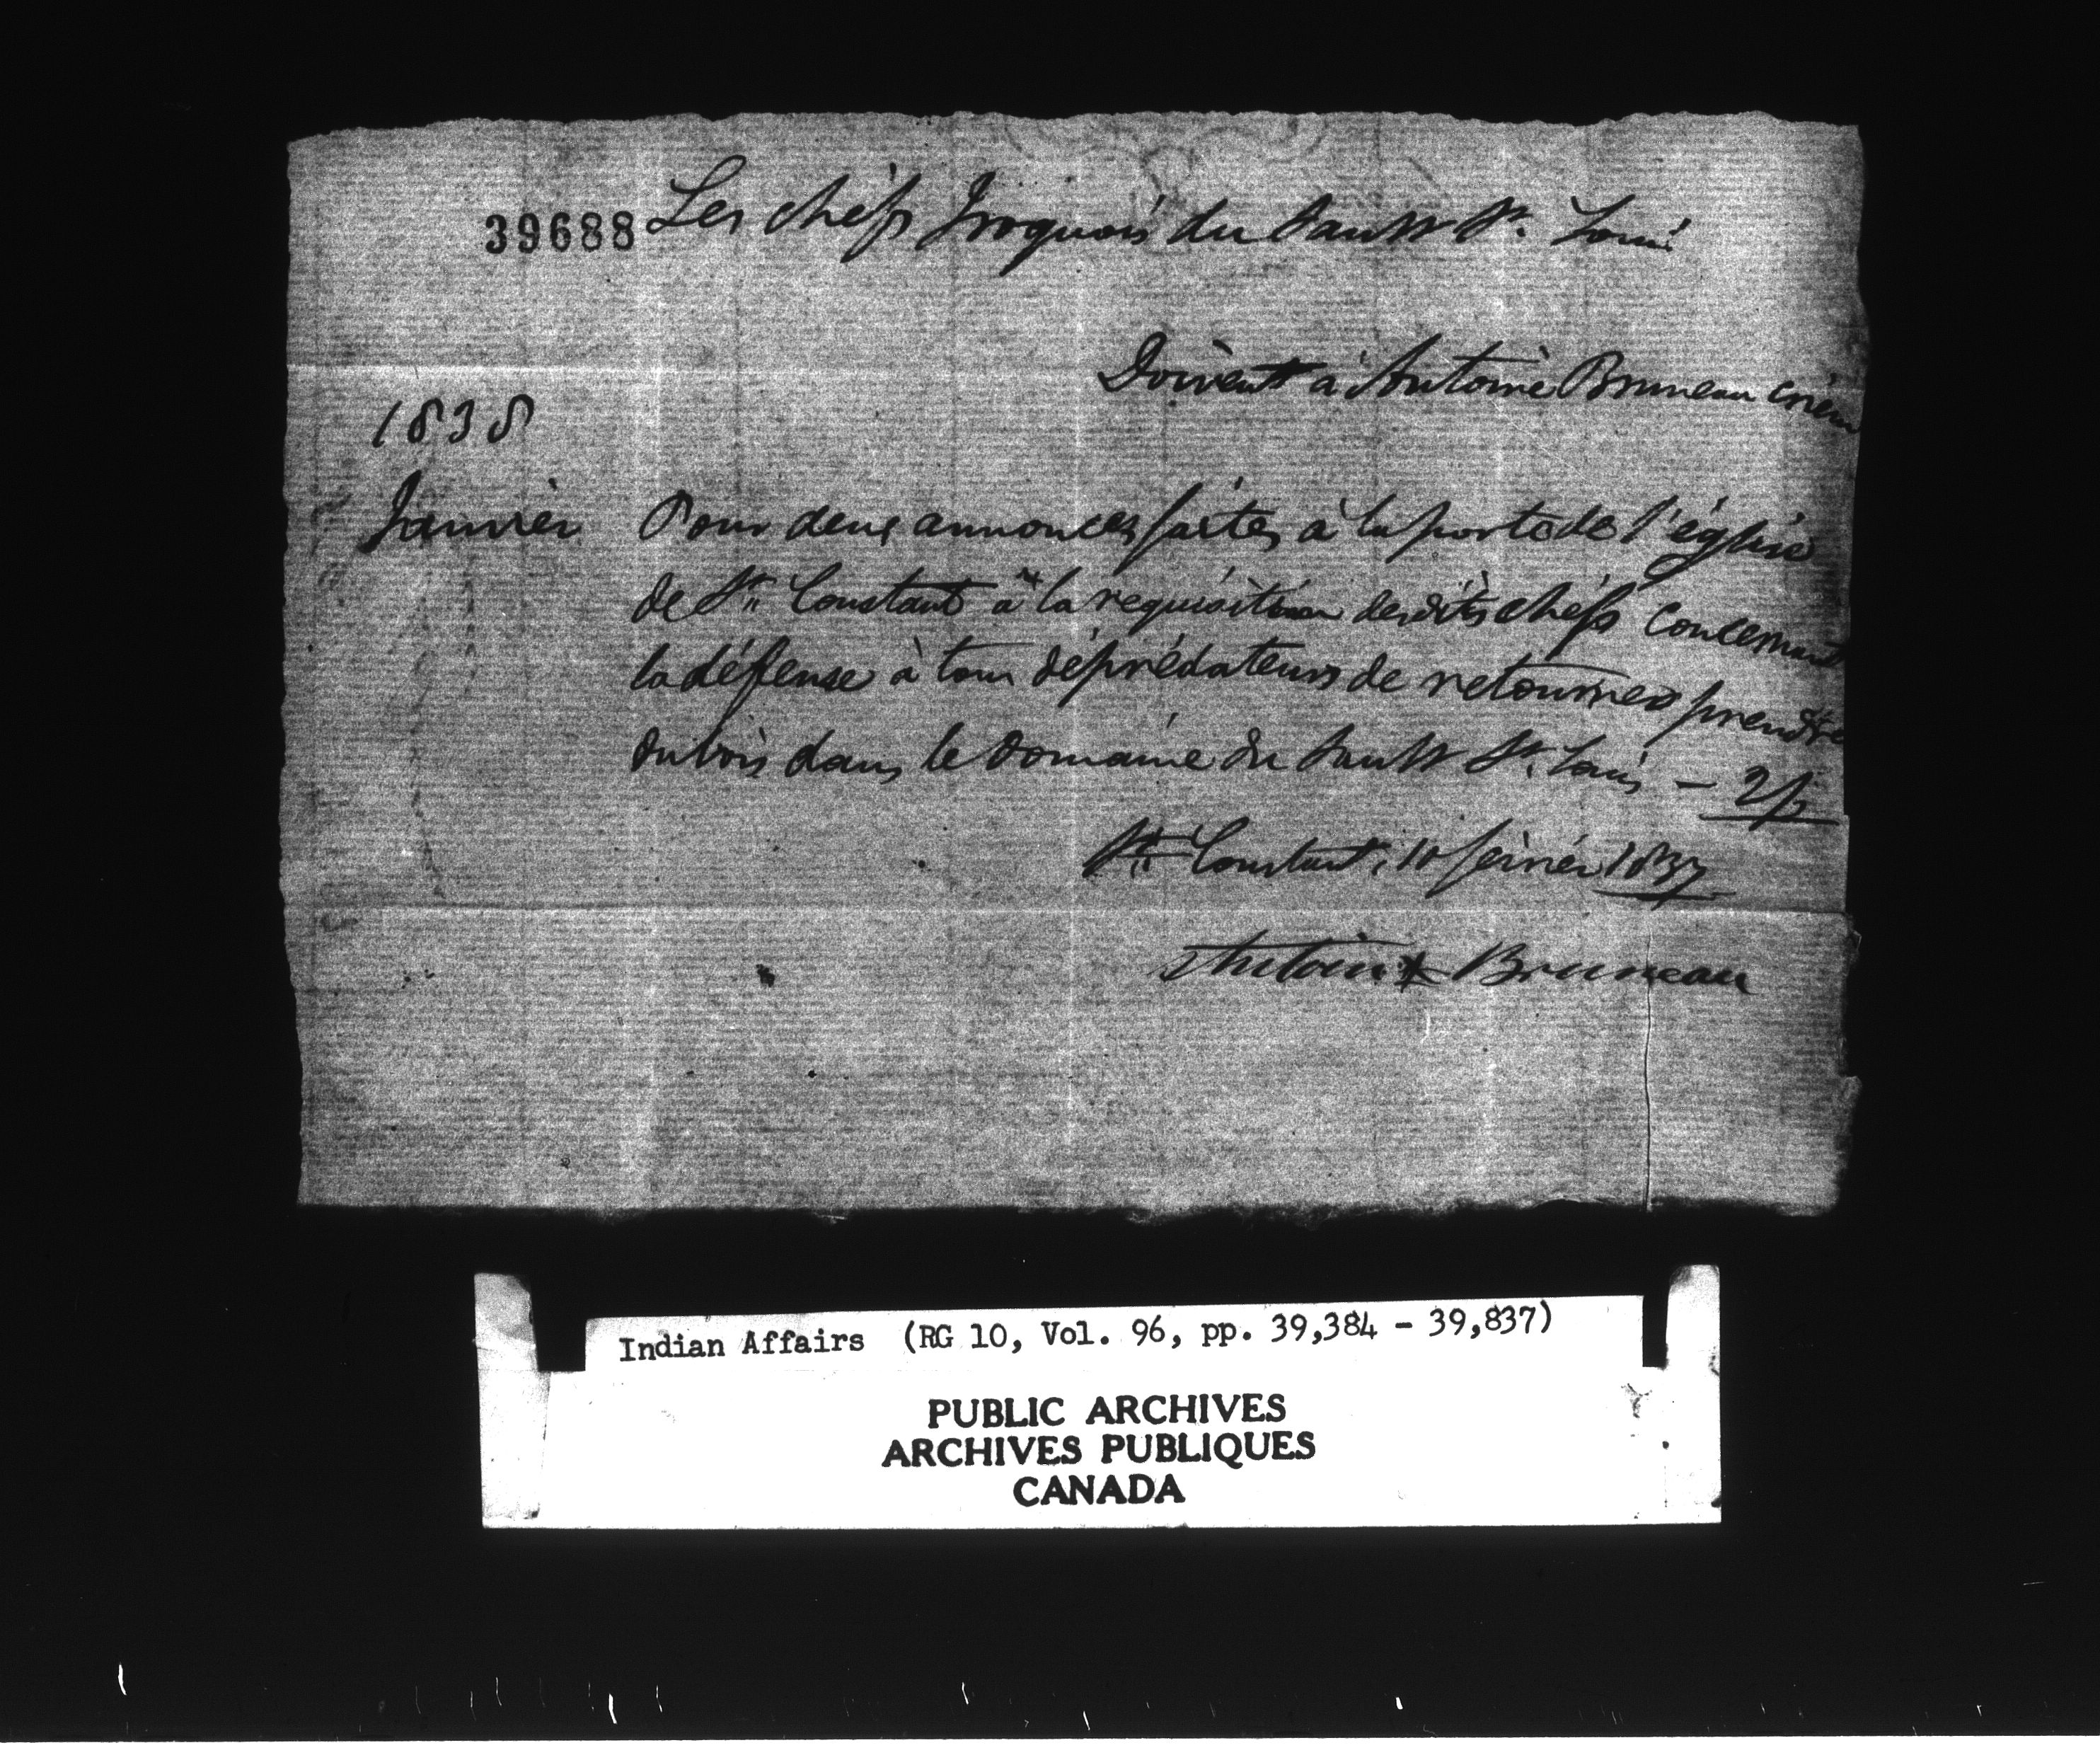 39688 Les chefs Iroquois du Sault St. Louis
Doivent à Antoine Bruneau crieur
1838
Janvier Pour deux annonces faites à la porte de l'église
de St. Constant à la requisition desdits chefs concernant
la défense à tous déprédateurs de retourner prendre
du bois dans le Domaine du Sault St. Louis —
St. Constant, 10 février 1837
Antoine Bruneau
Indian Affairs (RG 10, Vol. 96, pp. 39,384 - 39,837)
PUBLIC ARCHIVES
ARCHIVES PUBLIQUES
CANADA